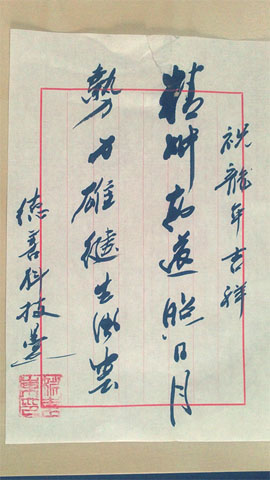 祝龍年吉祥
精神高遠照日月
勢力雄健生風雲
德善科技